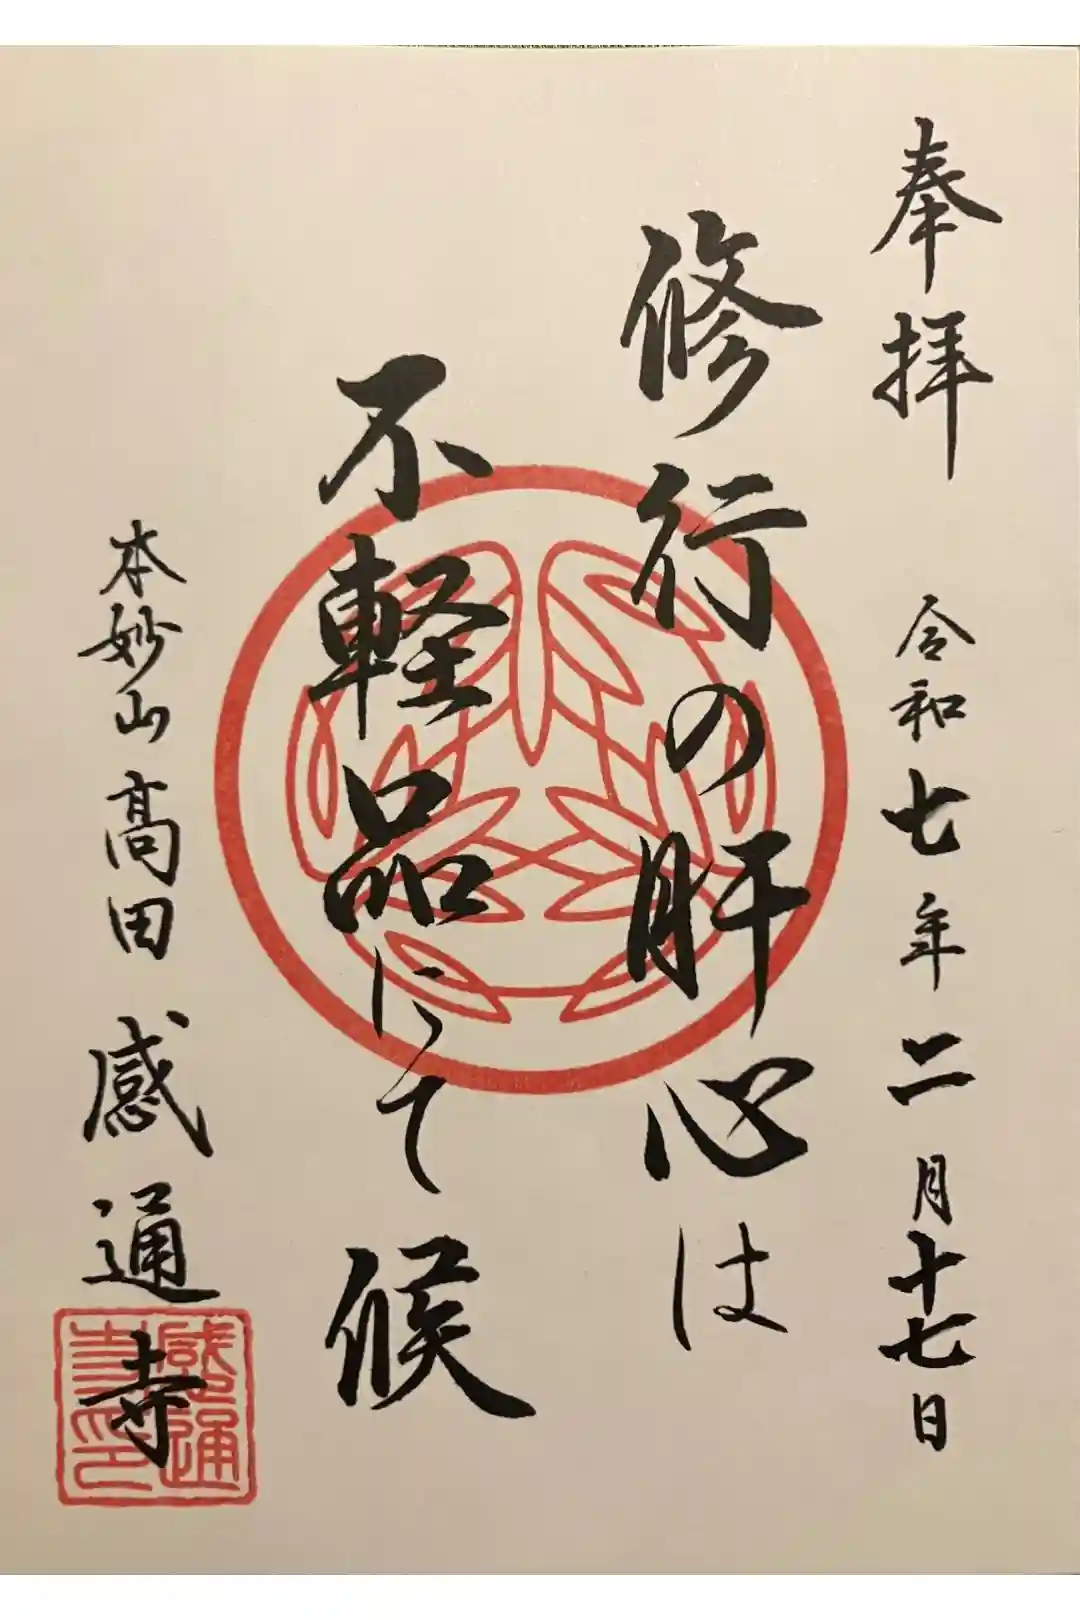 奉拝 令和七年二月十七日
修行の肝心は
不軽品にて候
本妙山 高田 感通寺
感通
寺印